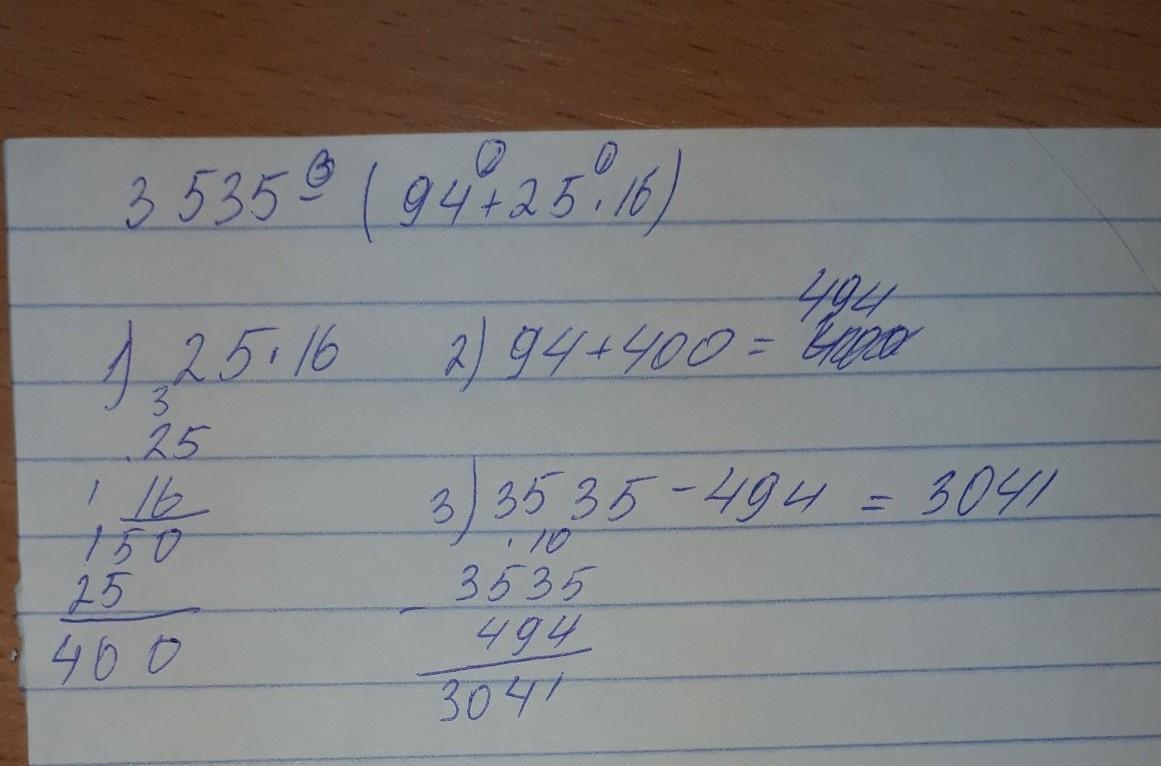 3 535 - (94 + 25 · 16)
1) 25 · 16
3
25
1 16
150
25
400
494
2) 94 + 400 =
3) 3535 - 494 = 3041
. 10
3535
- 494
3041